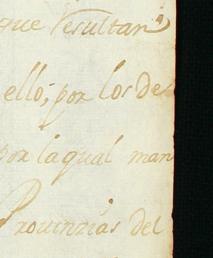 que resultan
ello, por los de
por la qual man
Prouinzias del